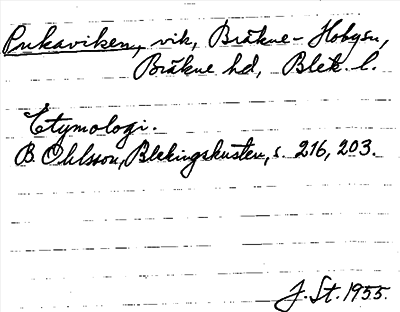 Pukaviken, vik, Bräkne-Hobysn,
Bräkne hd, Blek. l.
Etymologi.
B. Ohlsson, Blekingskusten, s. 216, 203.
J. St. 1955.